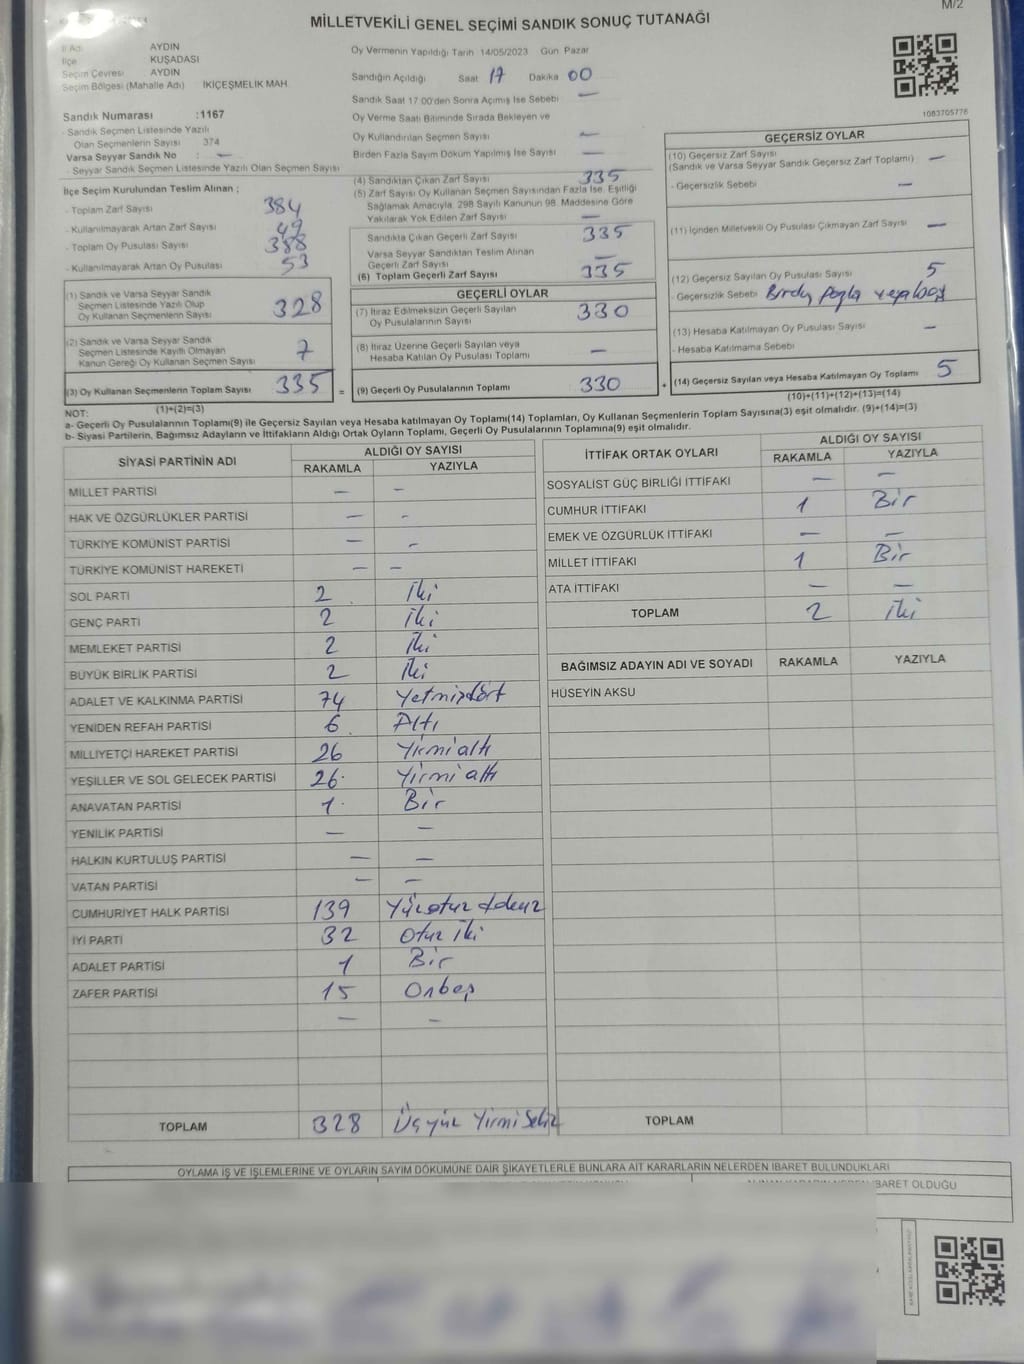 M/2
MİLLETVEKİLİ GENEL SEÇİMİ SANDIK SONUÇ TUTANAĞI
İl Adı AYDIN
İlçe KUŞADASI
Seçim Çevresi AYDIN
Seçim Bölgesi (Mahalle Adı) İKİÇEŞMELİK MAH.
Oy Vermenin Yapıldığı Tarih 14/05/2023 Gün Pazar
Sandığın Açıldığı Saat 17 Dakika 00
Sandık Saat 17:00'den Sonra Açılmış İse Sebebi —
Oy Verme Saati Bitiminde Sırada Bekleyen ve
Oy Kullandırılan Seçmen Sayısı —
Birden Fazla Sayım Döküm Yapılmış İse Sayısı —
1083705776
Sandık Numarası :1167
- Sandık Seçmen Listesinde Yazılı
Olan Seçmenlerin Sayısı 374
Varsa Seyyar Sandık No : —
- Seyyar Sandık Seçmen Listesinde Yazılı Olan Seçmen Sayısı
İlçe Seçim Kurulundan Teslim Alınan ;
- Toplam Zarf Sayısı 384
- Kullanılmayarak Artan Zarf Sayısı 49
- Toplam Oy Pusulası Sayısı 388
- Kullanılmayarak Artan Oy Pusulası 53
(1) Sandık ve Varsa Seyyar Sandık
Seçmen Listesinde Yazılı Olup
Oy Kullanan Seçmenlerin Sayısı 328
(2) Sandık ve Varsa Seyyar Sandık
Seçmen Listesinde Kayıtlı Olmayan
Kanun Gereği Oy Kullanan Seçmen Sayısı 7
(3) Oy Kullanan Seçmenlerin Toplam Sayısı 335 =
(1)+(2)=(3)
(4) Sandıktan Çıkan Zarf Sayısı 335
(5) Zarf Sayısı Oy Kullanan Seçmen Sayısından Fazla İse, Eşitliği
Sağlamak Amacıyla, 298 Sayılı Kanunun 98. Maddesine Göre
Yakılarak Yok Edilen Zarf Sayısı —
Sandıkta Çıkan Geçerli Zarf Sayısı 335
Varsa Seyyar Sandıktan Teslim Alınan
Geçerli Zarf Sayısı —
(6) Toplam Geçerli Zarf Sayısı 335
GEÇERLİ OYLAR
(7) İtiraz Edilmeksizin Geçerli Sayılan
Oy Pusulalarının Sayısı 330
(8) İtiraz Üzerine Geçerli Sayılan veya
Hesaba Katılan Oy Pusulası Toplamı —
(9) Geçerli Oy Pusulalarının Toplamı 330 +
GEÇERSİZ OYLAR
(10) Geçersiz Zarf Sayısı
(Sandık ve Varsa Seyyar Sandık Geçersiz Zarf Toplamı) —
- Geçersizlik Sebebi —
(11) İçinden Milletvekili Oy Pusulası Çıkmayan Zarf Sayısı —
(12) Geçersiz Sayılan Oy Pusulası Sayısı 5
- Geçersizlik Sebebi Birden fazla
(13) Hesaba Katılmayan Oy Pusulası Sayısı —
- Hesaba Katılmama Sebebi
(14) Geçersiz Sayılan veya Hesaba Katılmayan Oy Toplamı 5
(10)+(11)+(12)+(13)=(14)
NOT:
a- Geçerli Oy Pusulalarının Toplamı(9) ile Geçersiz Sayılan veya Hesaba katılmayan Oy Toplamı(14) Toplamları, Oy Kullanan Seçmenlerin Toplam Sayısına(3) eşit olmalıdır. (9)+(14)=(3)
b- Siyasi Partilerin, Bağımsız Adayların ve İttifakların Aldığı Ortak Oyların Toplamı, Geçerli Oy Pusulalarının Toplamına(9) eşit olmalıdır.
SİYASİ PARTİNİN ADI ALDIĞI OY SAYISI
RAKAMLA YAZIYLA
MİLLET PARTİSİ — —
HAK VE ÖZGÜRLÜKLER PARTİSİ — —
TÜRKİYE KOMÜNİST PARTİSİ — —
TÜRKİYE KOMÜNİST HAREKETİ — —
SOL PARTİ 2 iki
GENÇ PARTİ 2 iki
MEMLEKET PARTİSİ 2 iki
BÜYÜK BİRLİK PARTİSİ 2 iki
ADALET VE KALKINMA PARTİSİ 74 Yetmişdört
YENİDEN REFAH PARTİSİ 6 Altı
MİLLİYETÇİ HAREKET PARTİSİ 26 Yirmi altı
YEŞİLLER VE SOL GELECEK PARTİSİ 26 Yirmi altı
ANAVATAN PARTİSİ 1 Bir
YENİLİK PARTİSİ — —
HALKIN KURTULUŞ PARTİSİ — —
VATAN PARTİSİ — —
CUMHURİYET HALK PARTİSİ 139
İYİ PARTİ 32 Otuz iki
ADALET PARTİSİ 1 Bir
ZAFER PARTİSİ 15 Onbeş
— —
TOPLAM 328 Üçyüz Yirmi Sekiz
İTTİFAK ORTAK OYLARI ALDIĞI OY SAYISI
RAKAMLA YAZIYLA
SOSYALİST GÜÇ BİRLİĞİ İTTİFAKI — —
CUMHUR İTTİFAKI 1 Bir
EMEK VE ÖZGÜRLÜK İTTİFAKI — —
MİLLET İTTİFAKI 1 Bir
ATA İTTİFAKI — —
TOPLAM 2 iki
BAĞIMSIZ ADAYIN ADI VE SOYADI RAKAMLA YAZIYLA
HÜSEYİN AKSU
TOPLAM
OYLAMA İŞ VE İŞLEMLERİNE VE OYLARIN SAYIM DÖKÜMÜNE DAİR ŞİKAYETLERLE BUNLARA AİT KARARLARIN NELERDEN İBARET BULUNDUKLARI
İBARET OLDUĞU